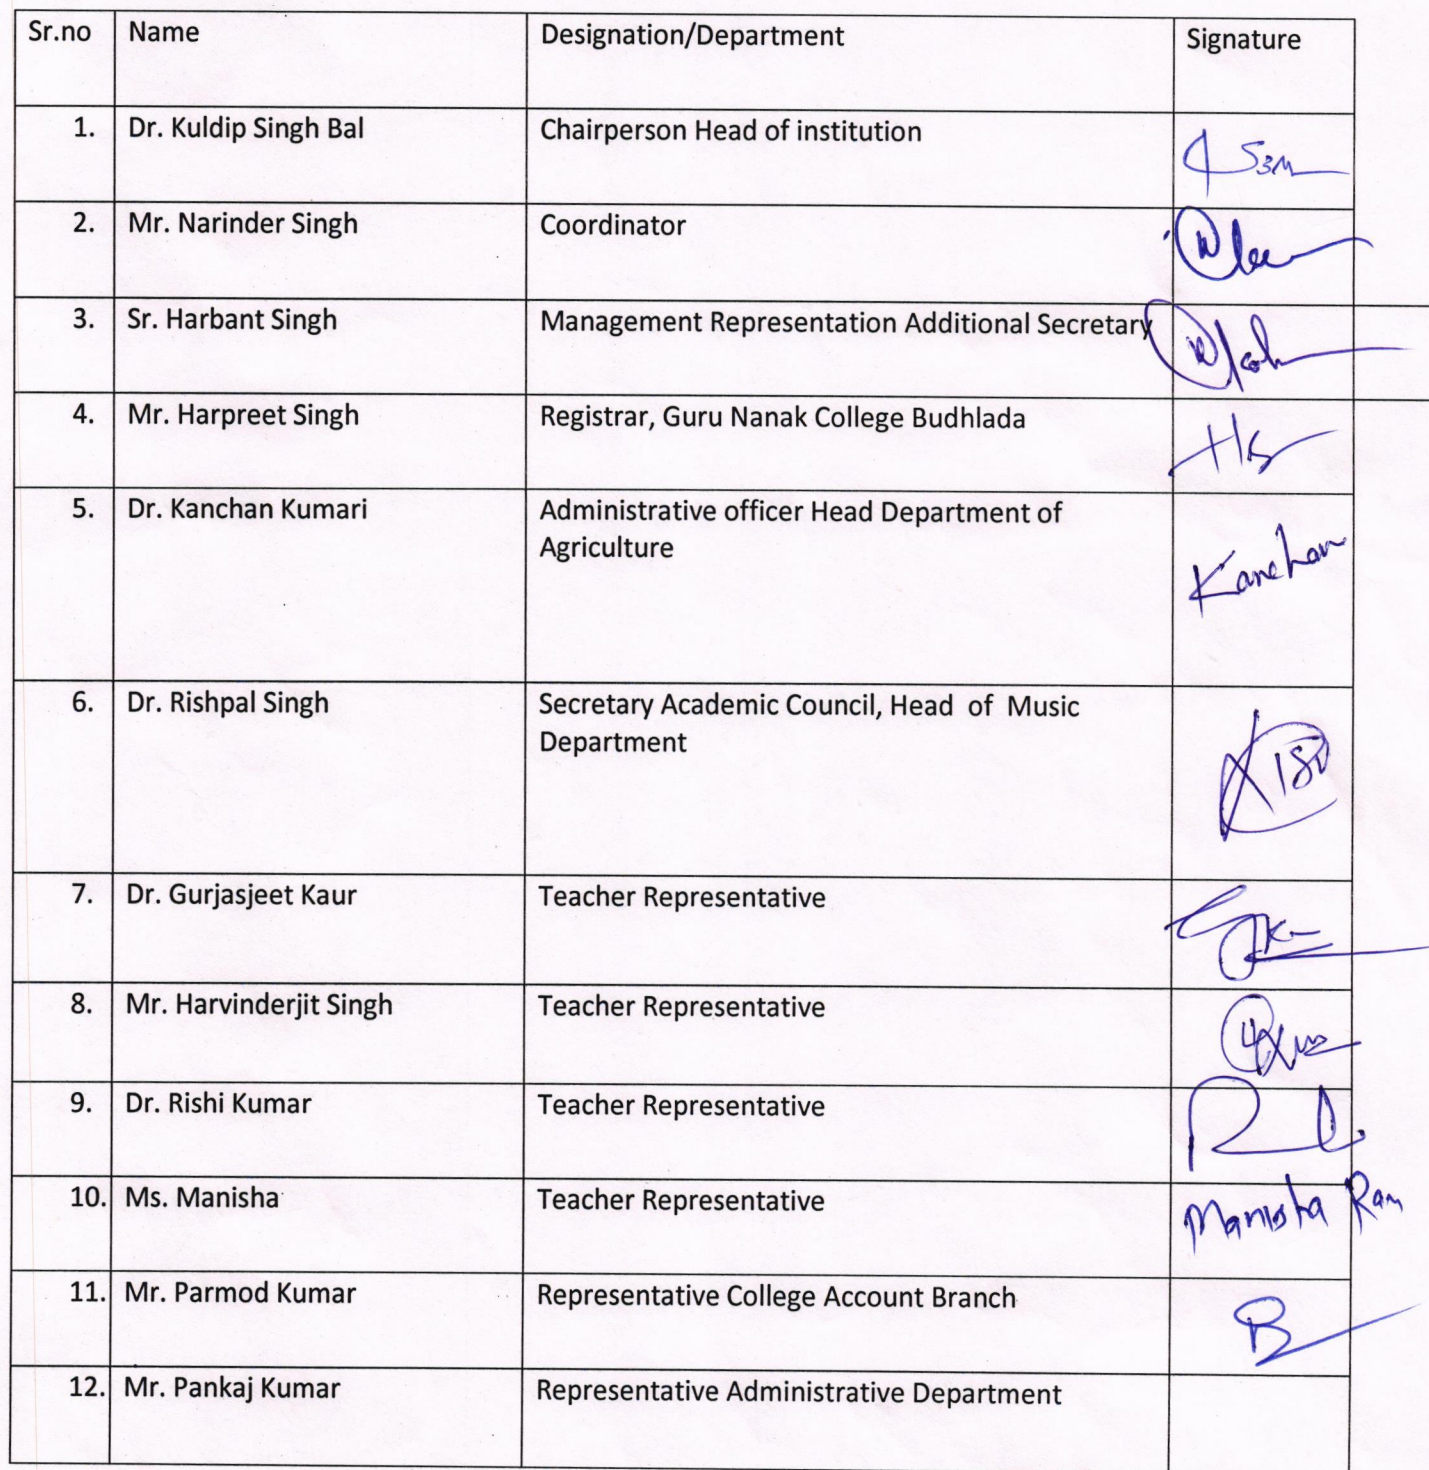 Sr.no Name Designation/Department Signature
1. Dr. Kuldip Singh Bal Chairperson Head of institution
2. Mr. Narinder Singh Coordinator
3. Sr. Harbant Singh Management Representation Additional Secretary
4. Mr. Harpreet Singh Registrar, Guru Nanak College Budhlada
5. Dr. Kanchan Kumari Administrative officer Head Department of
Agriculture
Kanchan
6. Dr. Rishpal Singh Secretary Academic Council, Head of Music
Department
7. Dr. Gurjasjeet Kaur Teacher Representative
8. Mr. Harvinderjit Singh Teacher Representative
9. Dr. Rishi Kumar Teacher Representative
10. Ms. Manisha Teacher Representative Manisha Ram
11. Mr. Parmod Kumar Representative College Account Branch
12. Mr. Pankaj Kumar Representative Administrative Department